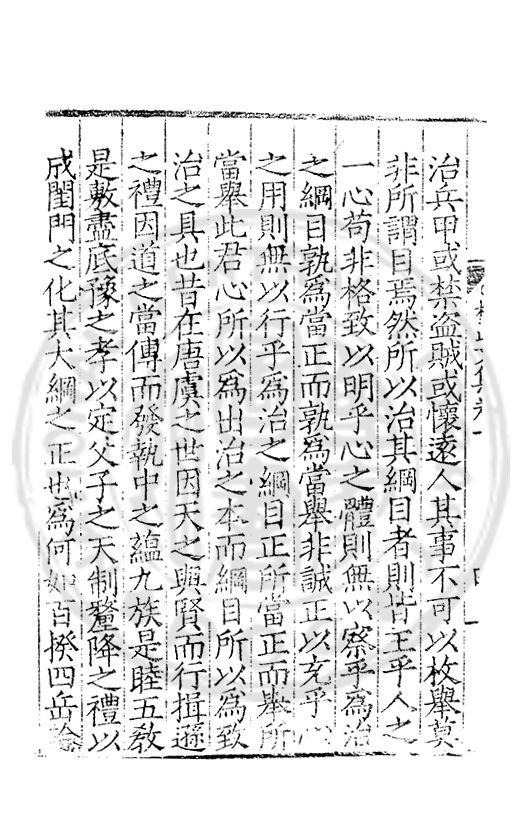 治兵甲或禁盜賊或懷遠人其事不可以枚舉莫
非所謂目焉然所以治其綱目者則皆主乎人之
一心苟非格致以明乎心之體則無以察乎為治
之綱目孰為當正而孰為當舉非誠正以充乎心
之用則無以行乎為治之綱目正所當正而舉所
當舉此君心所以為出治之本而綱目所以為致
治之具也昔在唐虞之世因天之與賢而行揖遜
之禮因道之當傳而發執中之蘊九族是睦五敎
是敷盡底豫之孝以定父子之天制釐降之禮以
成閨門之化其大綱之正也為何如百揆四岳